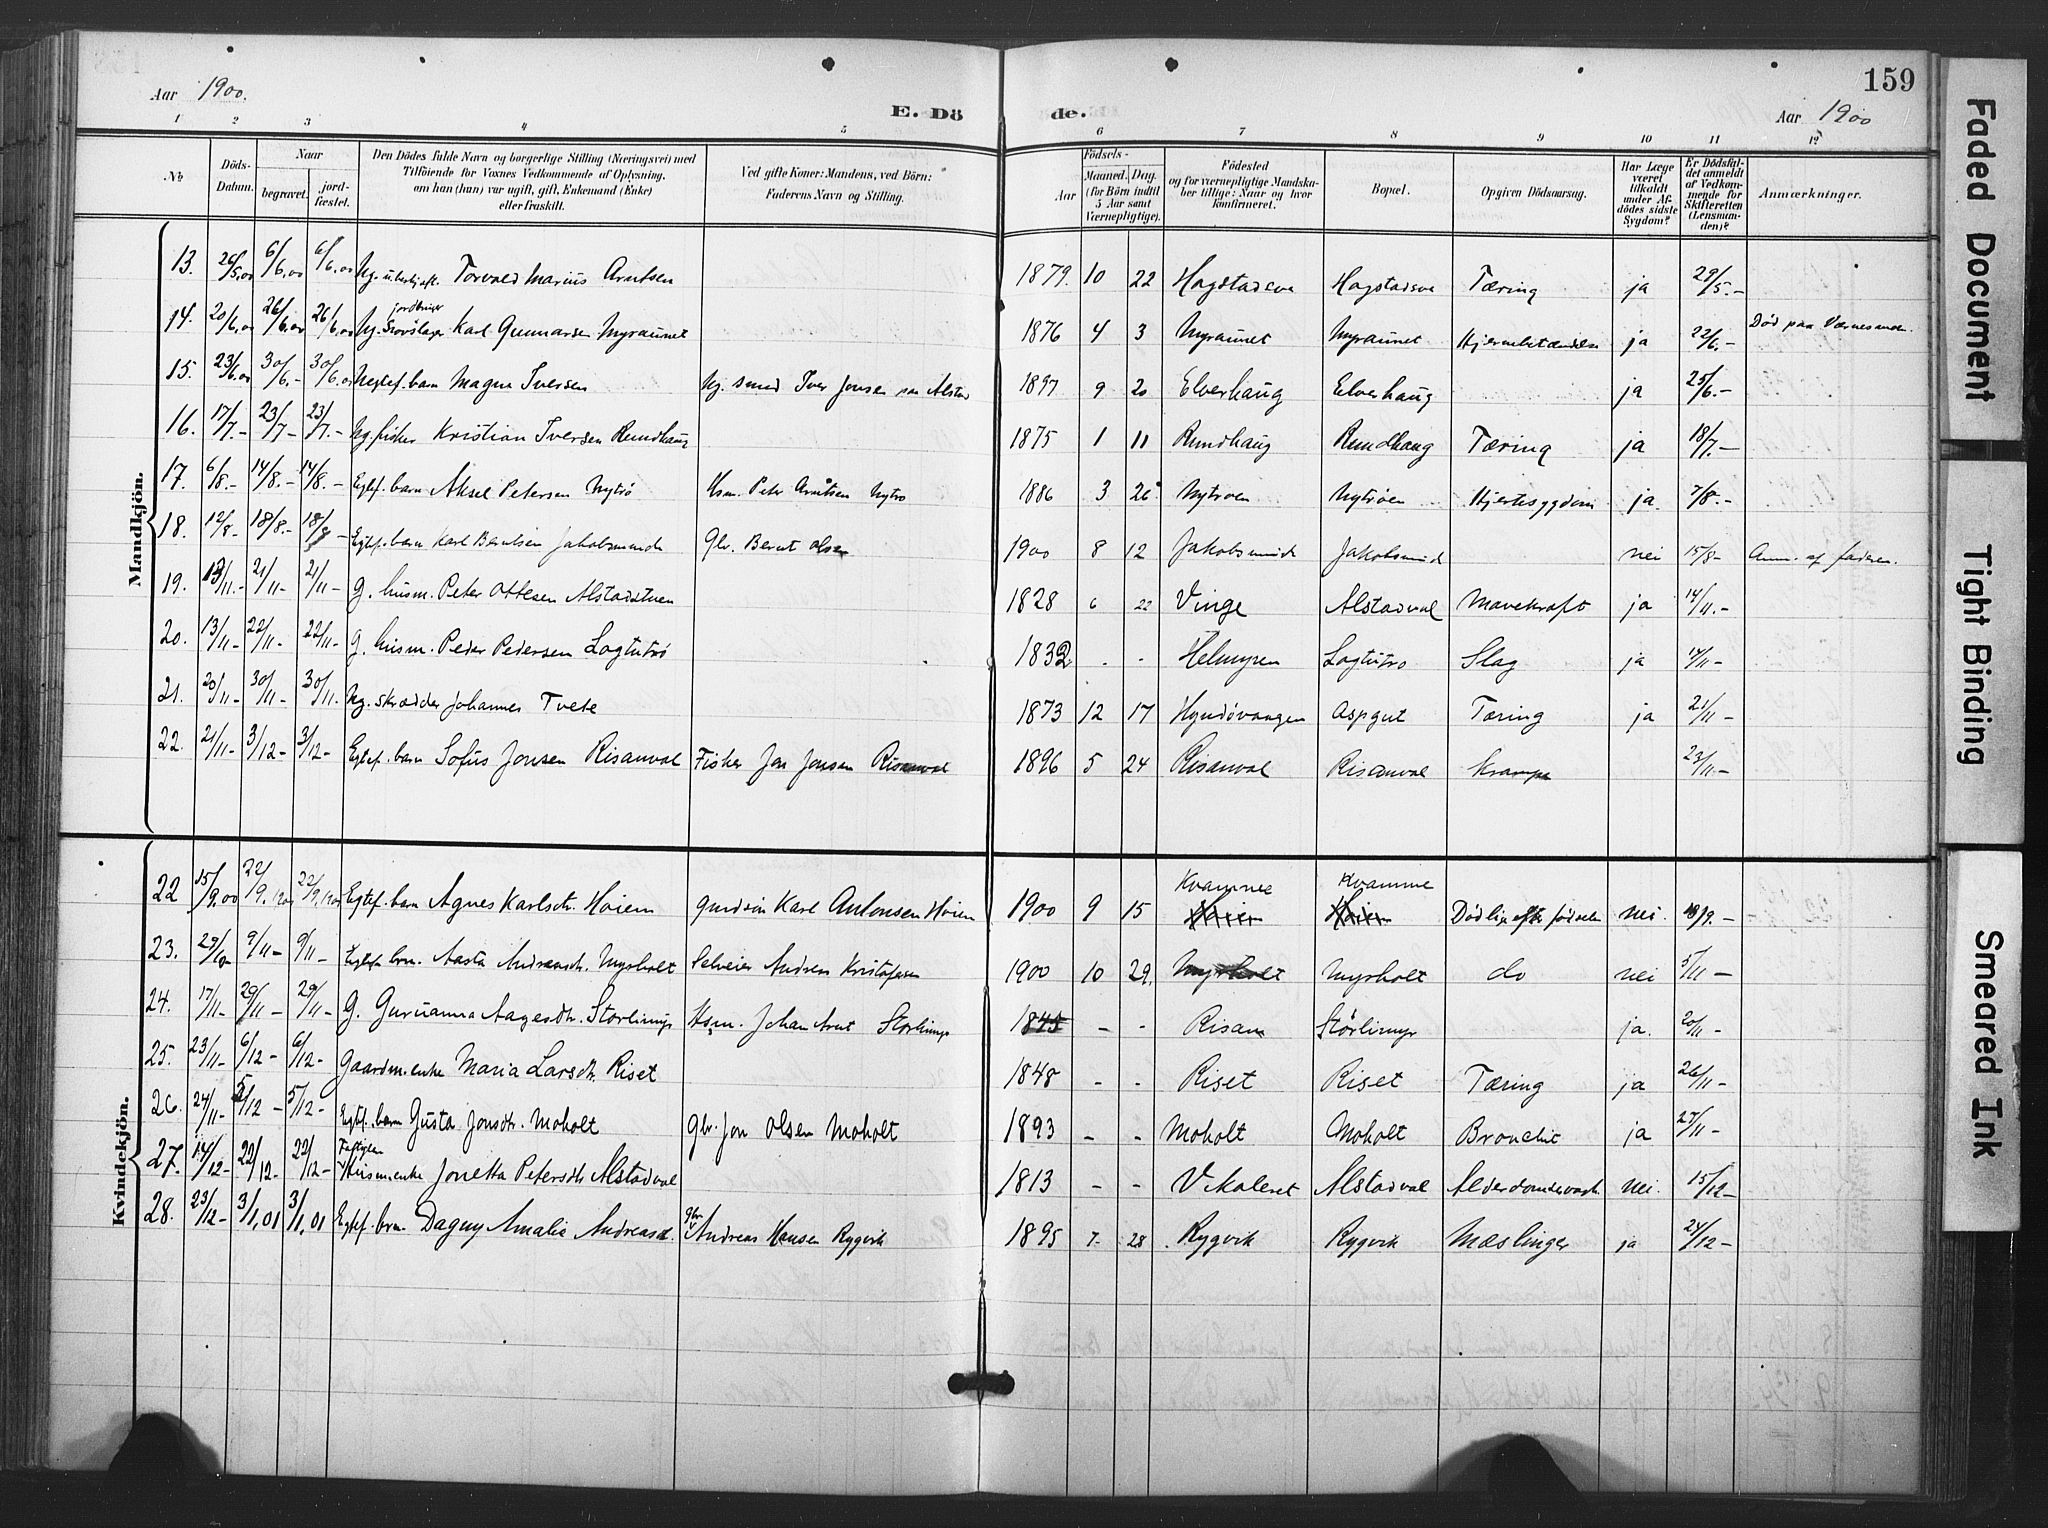 159
Aar 1900.
E. Dö
de.
Aar 1900
1 2 3 4 5 6 7 8 9 10 11 12
No
Döds-Datum.
Naar
begravet.
jord-fæstet.
Den Dödes fulde Navn og borgerlige Stilling (Næringsvei) med
Tilföiende for Voxnes Vedkommende af Oplysning,
om han (hun) var ugift, gift, Enkemand (Enke)
eller fraskilt.
Ved gifte Koner: Mandens, ved Börn:
Faderens Navn og Stilling.
Födsels-
Aar
Maaned. Dag.
(for Börn indtil
5 Aar samt
Værnepligtige).
Födested
og for værnepligtige Mandska-
ber tillige: Naar og hvor
konfirmeret.
Bopæl.
Opgiven Dödsaarsag.
Har Læge
været
tilkaldt
under Af-
dödes sidste
Sygdom?
Er Dödsfal-
det anmeldt
af Vedkom-
mende for
Skifteretten
(Lensman-
den)?
Anmærkninger.
Mandkjön.
13. 26/5.00 6/6.00 6/6.00 Torvald Marius Arntsen 1879. 10 22 Hagstadsve Hagstadsve Tæring ja 29/5.-
14. 20/6.00 26/6.00 26/6.00 Karl Gunnarsen Myraunet 1876 4 3 Myraunet Myraunet ja 22/6.- Död paa
15. 23/6.00 30/6.- 30/6.00 Magne Iversen Ug. smed Iver Jonsen paa Alstad 1897 9 20 Elverhaug Elverhaug ja 25/6.-
16. 17/7.- 23/7- 23/7.- Ug. fisker Kristian Iversen Rundhaug 1875 1 11 Rundhaug Rundhaug Tæring ja 18/7.-
17. 6/8.- 14/8.- 14/8.- Egtef. barn Aksel Petersen Nytrö Hsm. Peter Arntsen Nytro 1886 3 26 Nytroen Nytröen Hjertesygdom ja. 7/8.-
18. 12/8- 18/8.- 18/8- Egtef. barn Karl Berntsen Jakobsminde Gbr. Bernt Olsen 1900 8 12 Jakobsminde Jakobsmind nei 15/8- Anm. af faderen.
19. 13/11.- 21/11- 21/11- G. husm. Peter Ottesen 1828 6 22 Vinge Alstadval Mavekræft ja 14/11.-
20. 13/11- 22/11- 22/11- G. husm. Peder Pedersen Lagtutrö 1832 - - Helmyren Lagtutro Slag ja 14/11-
21. 20/11- 30/11- 30/11. Ug. skrædder Johannes Tvete 1873 12 17 Aspgut Tæring ja 21/11-
22. 21/11- 3/12- 3/12- Egtef. barn Sofus Jonsen Risanval Fisker Jon Jonsen Risanval 1896 5 24 Risanval Risanval Krampe 23/11.-
Kvindekjön.
22 15/9.00 22/9.1900 22/9.1900 Egtef. barn Agnes Karlsdtr. Hoiem Karl Antonsen Hoiem 1900 9 15 Kvamme Kvamme nei. 18/9.-
23. 9/11- 9/11- Egtef. brn. Aasta Andreasdtr. Myrholt Selveier Andreas Kristofersen 1900 10 29. Myrholt Myrholt do nei 5/11-
24. 17/11- 29/11- 29/11- G. Guruanna Aagesdtr. Störlimyr Hsm. Johan Arnt Störlimyr 1845 - - Risan Störlimyr ja. 20/11-
25. 23/11- 6/12- 6/12- Gaardm.enke Maria Larsdtr. Riset 1848 - - Riset Riset Tæring ja 26/11-
26. 24/11- 5/12- 5/12- Egtef. barn Gusta Jonsdtr. Moholt Gbr. Jon Olsen Moholt 1893 - - Moholt Moholt Bronchit ja 27/11-
27. 14/12- 22/12- 22/12- Fattiglem Husm.enke Jonetta Petersdtr. Alstadval 1813 - - Vikaleret Alstadval nei. 15/12-
28. 23/12- 3/1.01 3/1.01 Egtef. brn. Dagny Amalie Andreasd. gbr. Andreas Hansen Rygvik 1895 7- 28 Rygvik Rygvik Mæslinger ja 24/12-
Faded Document
Tight Binding
Smeared Ink